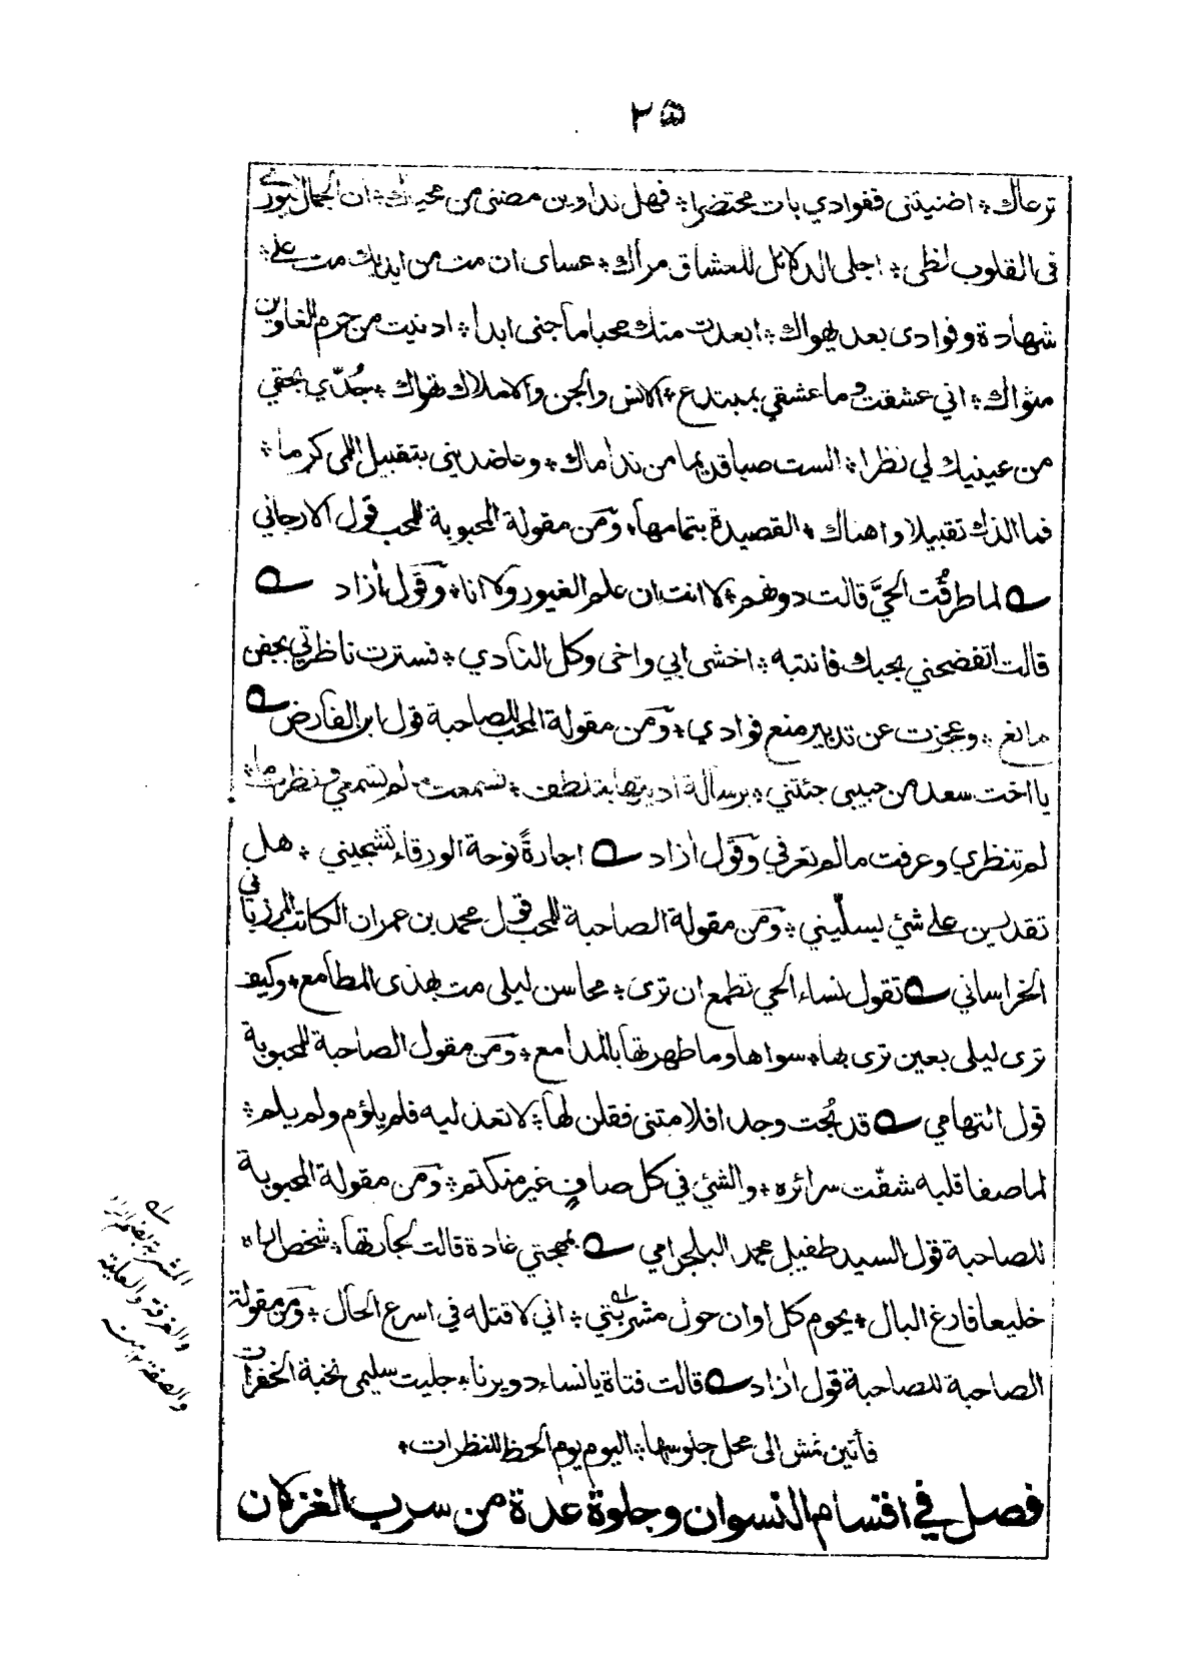 ٢٥
ترعاك ؞ اضنيتنى ففوادي بات محتضرا ؞ فهل تداوين مضنى من محياك ؞ ان الجمال لنوري
فى القلوب لظى ؞ اجلى الدلائل للعشاق مرأك ؞ عساى ان مت من ايديك مت على ؞
شهادة وفوادى بعد يهواك ؞ ابعدت منك محبا ما جنى ابدا ؞ ادنيت من جرم الغاوين
مثواك ؞ اني عشقت وما عشقي بمبتدع ؞ الانس والجن والاملاك تهواك ؞ جُدّي بحقي
من عينيك لي نظرا ؞ الست صبا قديما من نداماك ؞ وعاضديني بتقبيل اللمى كرما ؞
فما الذك تقبيلا واهناك ؞ القصيدة بتمامها، ومن مقولة المحبوبة للمحب قول الارجاني
لما طرقت الحيَّ قالت دونهم ؞ لا انت ان علم الغيور ولا انا ؞ وقول أزاد
قالت اتفضحني بحبك فانتبه ؞ اخشى ابي واخى وكل النادي ؞ فسترت ناظرتي بجفن
مانع ؞ وعجزت عن تدبير منع فوادي ؞ ومن مقولة المحب للصاحبة قول ابن الفارض
يا اخت سعد من حبيبى جئتني ؞ برسالة اديتها بتلطف ؞ فسمعت ما لم تسمعي ونظرت ما ؞
لم تنظري وعرفت ما لم تعرفي وقول أزاد اجارةً نوحة الورقاء تشجيني ؞ هل
تقدرين على شئ يسلّيني ؞ ومن مقولة الصاحبة للمحب قول محمد بن عمران الكاتب المرزباني
الخراساني تقول نساء الحي تطمع ان ترى ؞ محاسن ليلى مت بهذى المطامع ؞ وكيف
ترى ليلى بعين ترى بها ؞ سواها وما طهرتها بالمدامع ؞ ومن مقول الصاحبة للمحبوبة
قول التهامي قد بُحت وجدا فلامتنى فقلن لها ؞ لا تعذليه فلم يلؤم ولم يلم ؞
لما صفا قلبه شفّت سرائره ؞ والشئ في كل صافٍ غير منكتم ؞ ومن مقولة المحبوبة
للصاحبة قول السيد طفيل محمد البلجرامي بمهجتي غادة قالت لجارتها ؞ شخص اراه
خليعا فارغ البال ؞ يحوم كل اوان حول مشربتي ؞ اني لاقتله في اسرع الحال ؞ ومن مقولة
الصاحبة للصاحبة قول أزاد قالت فتاة يا نساء دويرنا ؞ جليت سليمى نخبة الخفرات
فأتين نمش الى محل جلوسها ؞ اليوم يوم الحظ للنظرات ؞
فصل في اقسام النسوان وجلوة عدة من سرب الغزلان
المشربة
والغرفة والعلية
والصفة